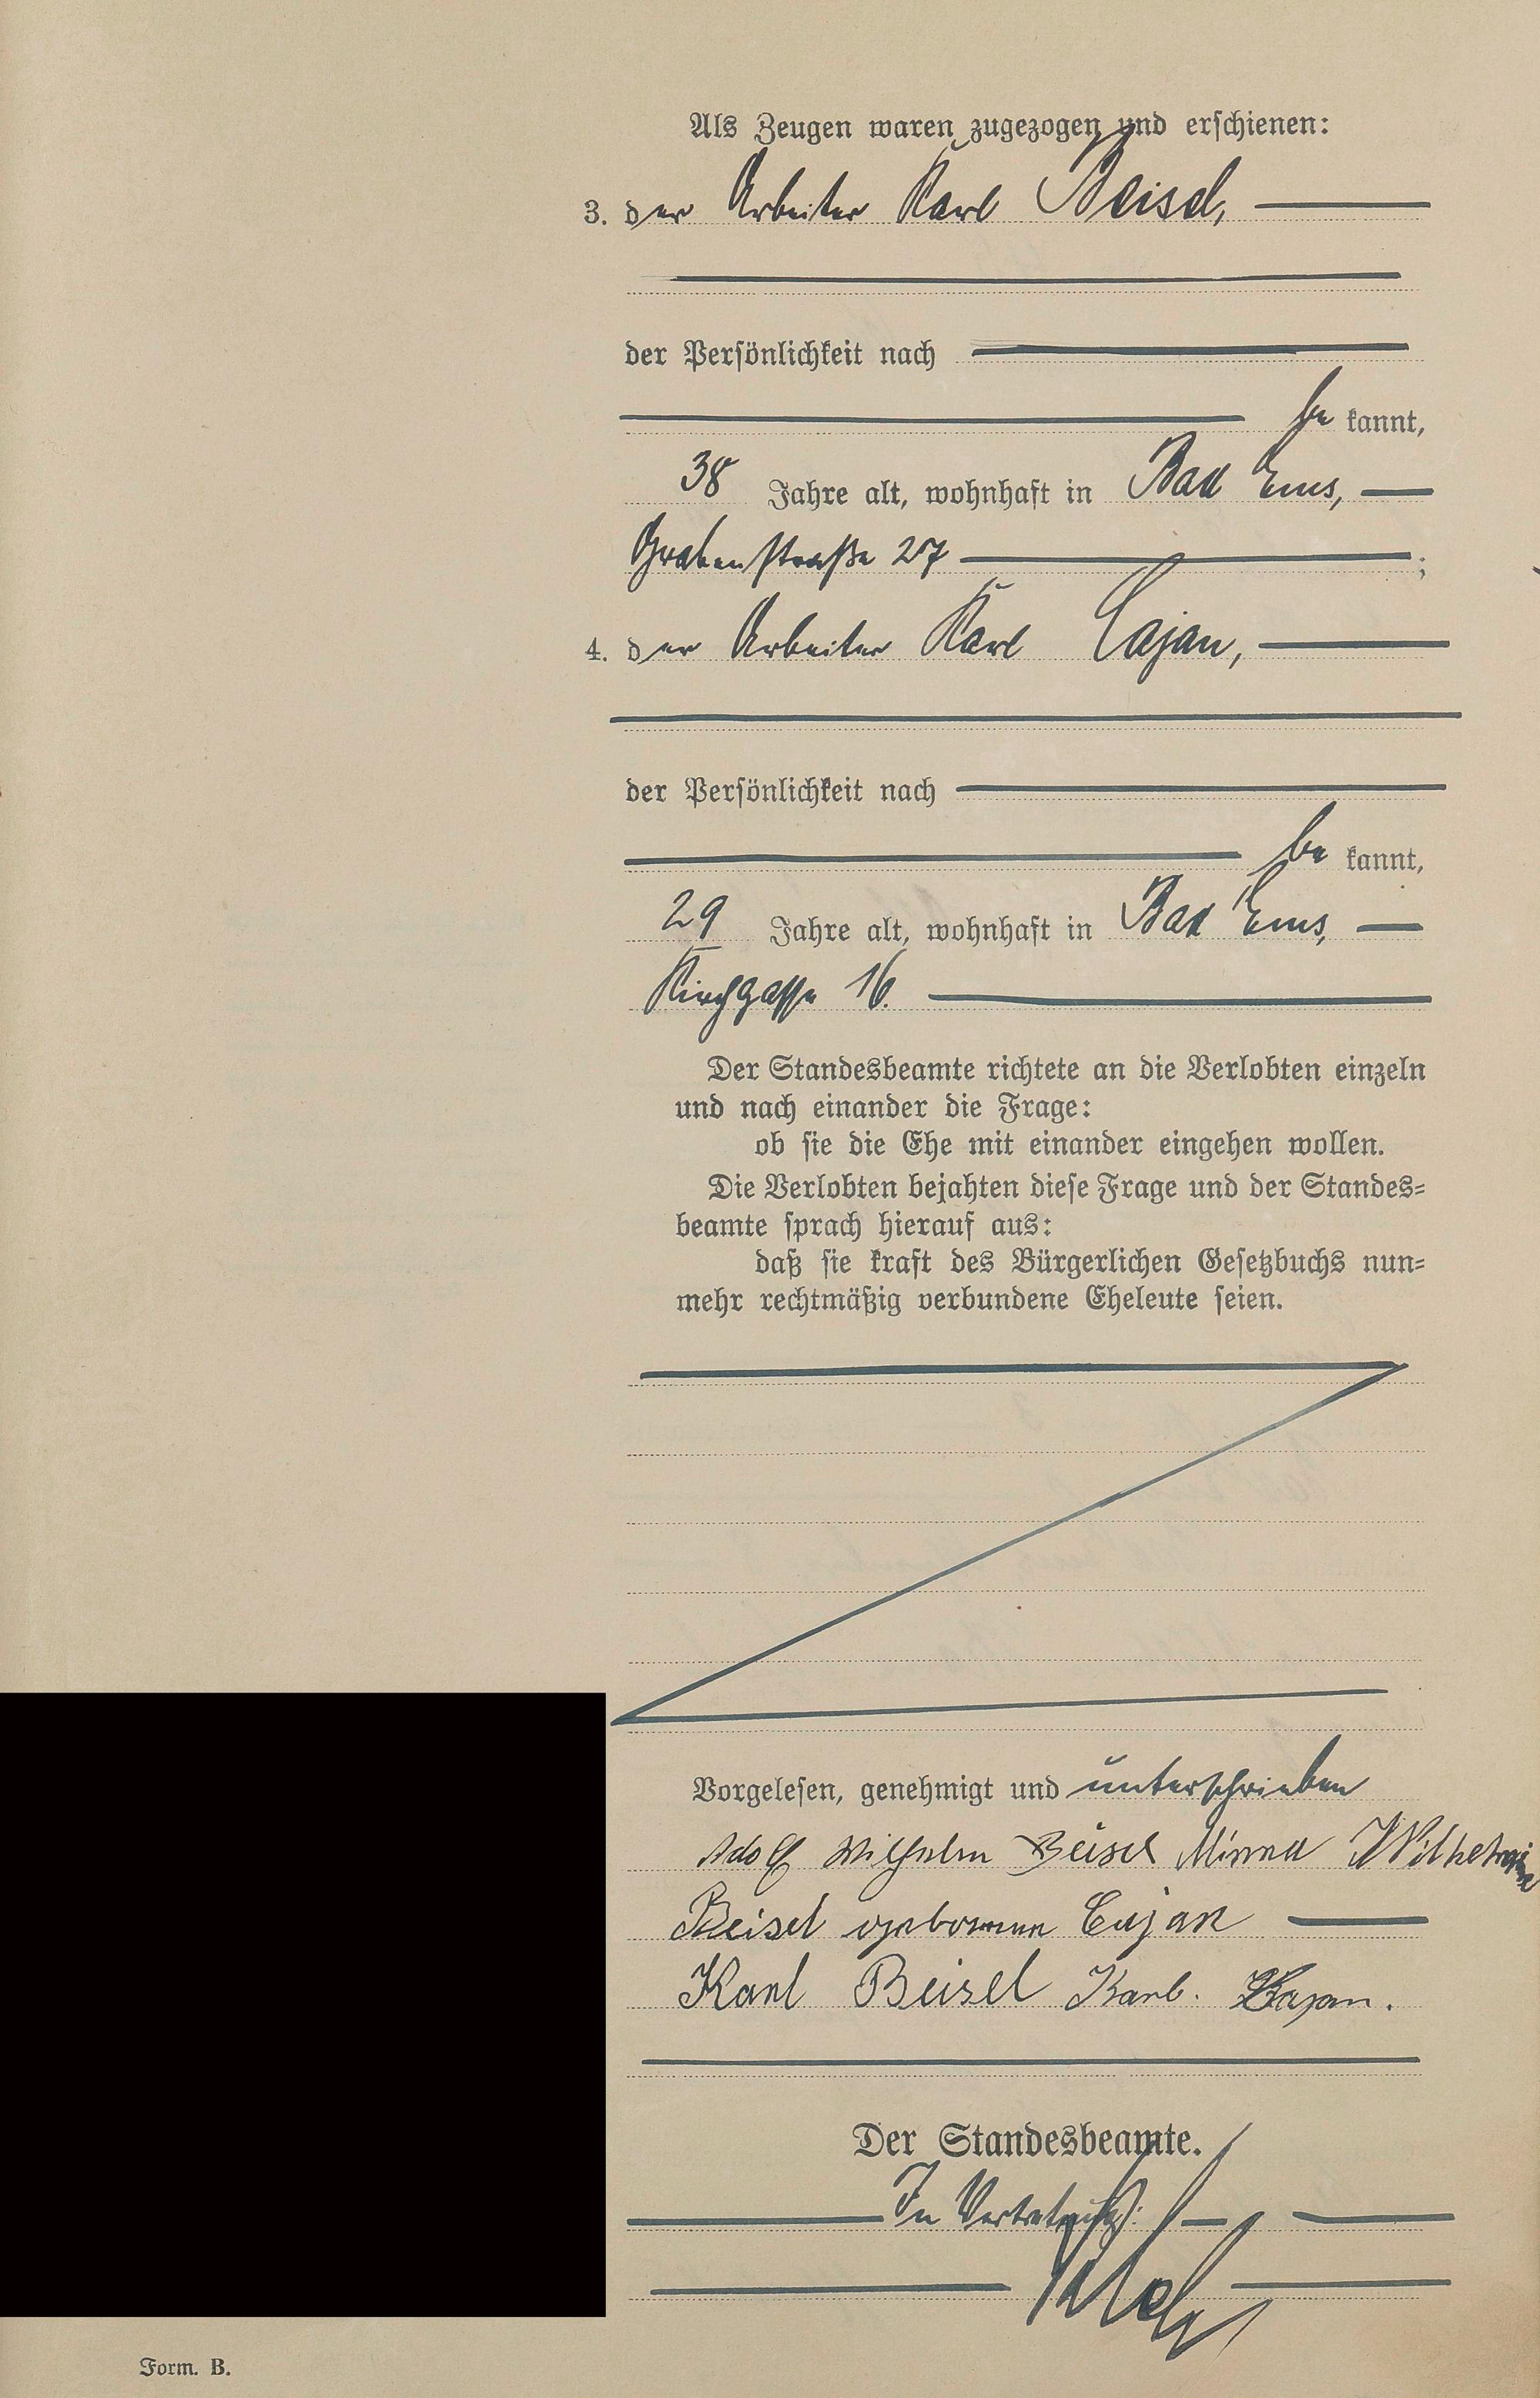 Als Zeugen waren zugezogen und erschienen:
3. der Arbeiter Karl Beisel,
der Persönlichkeit nach
be kannt,
38 Jahre alt, wohnhaft in Bad Ems,
Grabenstraße 27 ;
4. der Arbeiter Karl Cajan,
der Persönlichkeit nach
be kannt,
29 Jahre alt, wohnhaft in Bad Ems,
Kirchgasse 16.
Der Standesbeamte richtete an die Verlobten einzeln
und nach einander die Frage:
ob sie die Ehe mit einander eingehen wollen.
Die Verlobten bejahten diese Frage und der Standes=
beamte sprach hierauf aus:
daß sie kraft des Bürgerlichen Gesetzbuchs nun=
mehr rechtmäßig verbundene Eheleute seien.
Vorgelesen, genehmigt und unterschrieben
Adolf Wilhelm Beisel Minna Wilhelmine
Beisel geborene Cajan
Karl Beisel Karl. Cajan.
Der Standesbeamte.
In Vertretung:
Form. B.